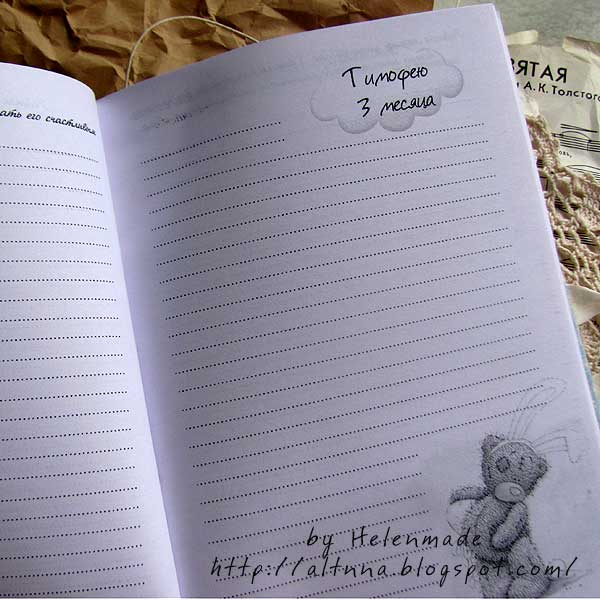 Тимофею
3 месяца
ать его счастливым
ЯТАЯ
А. К. Толстого
by Helenmade
http://altnna.blogspot.com/